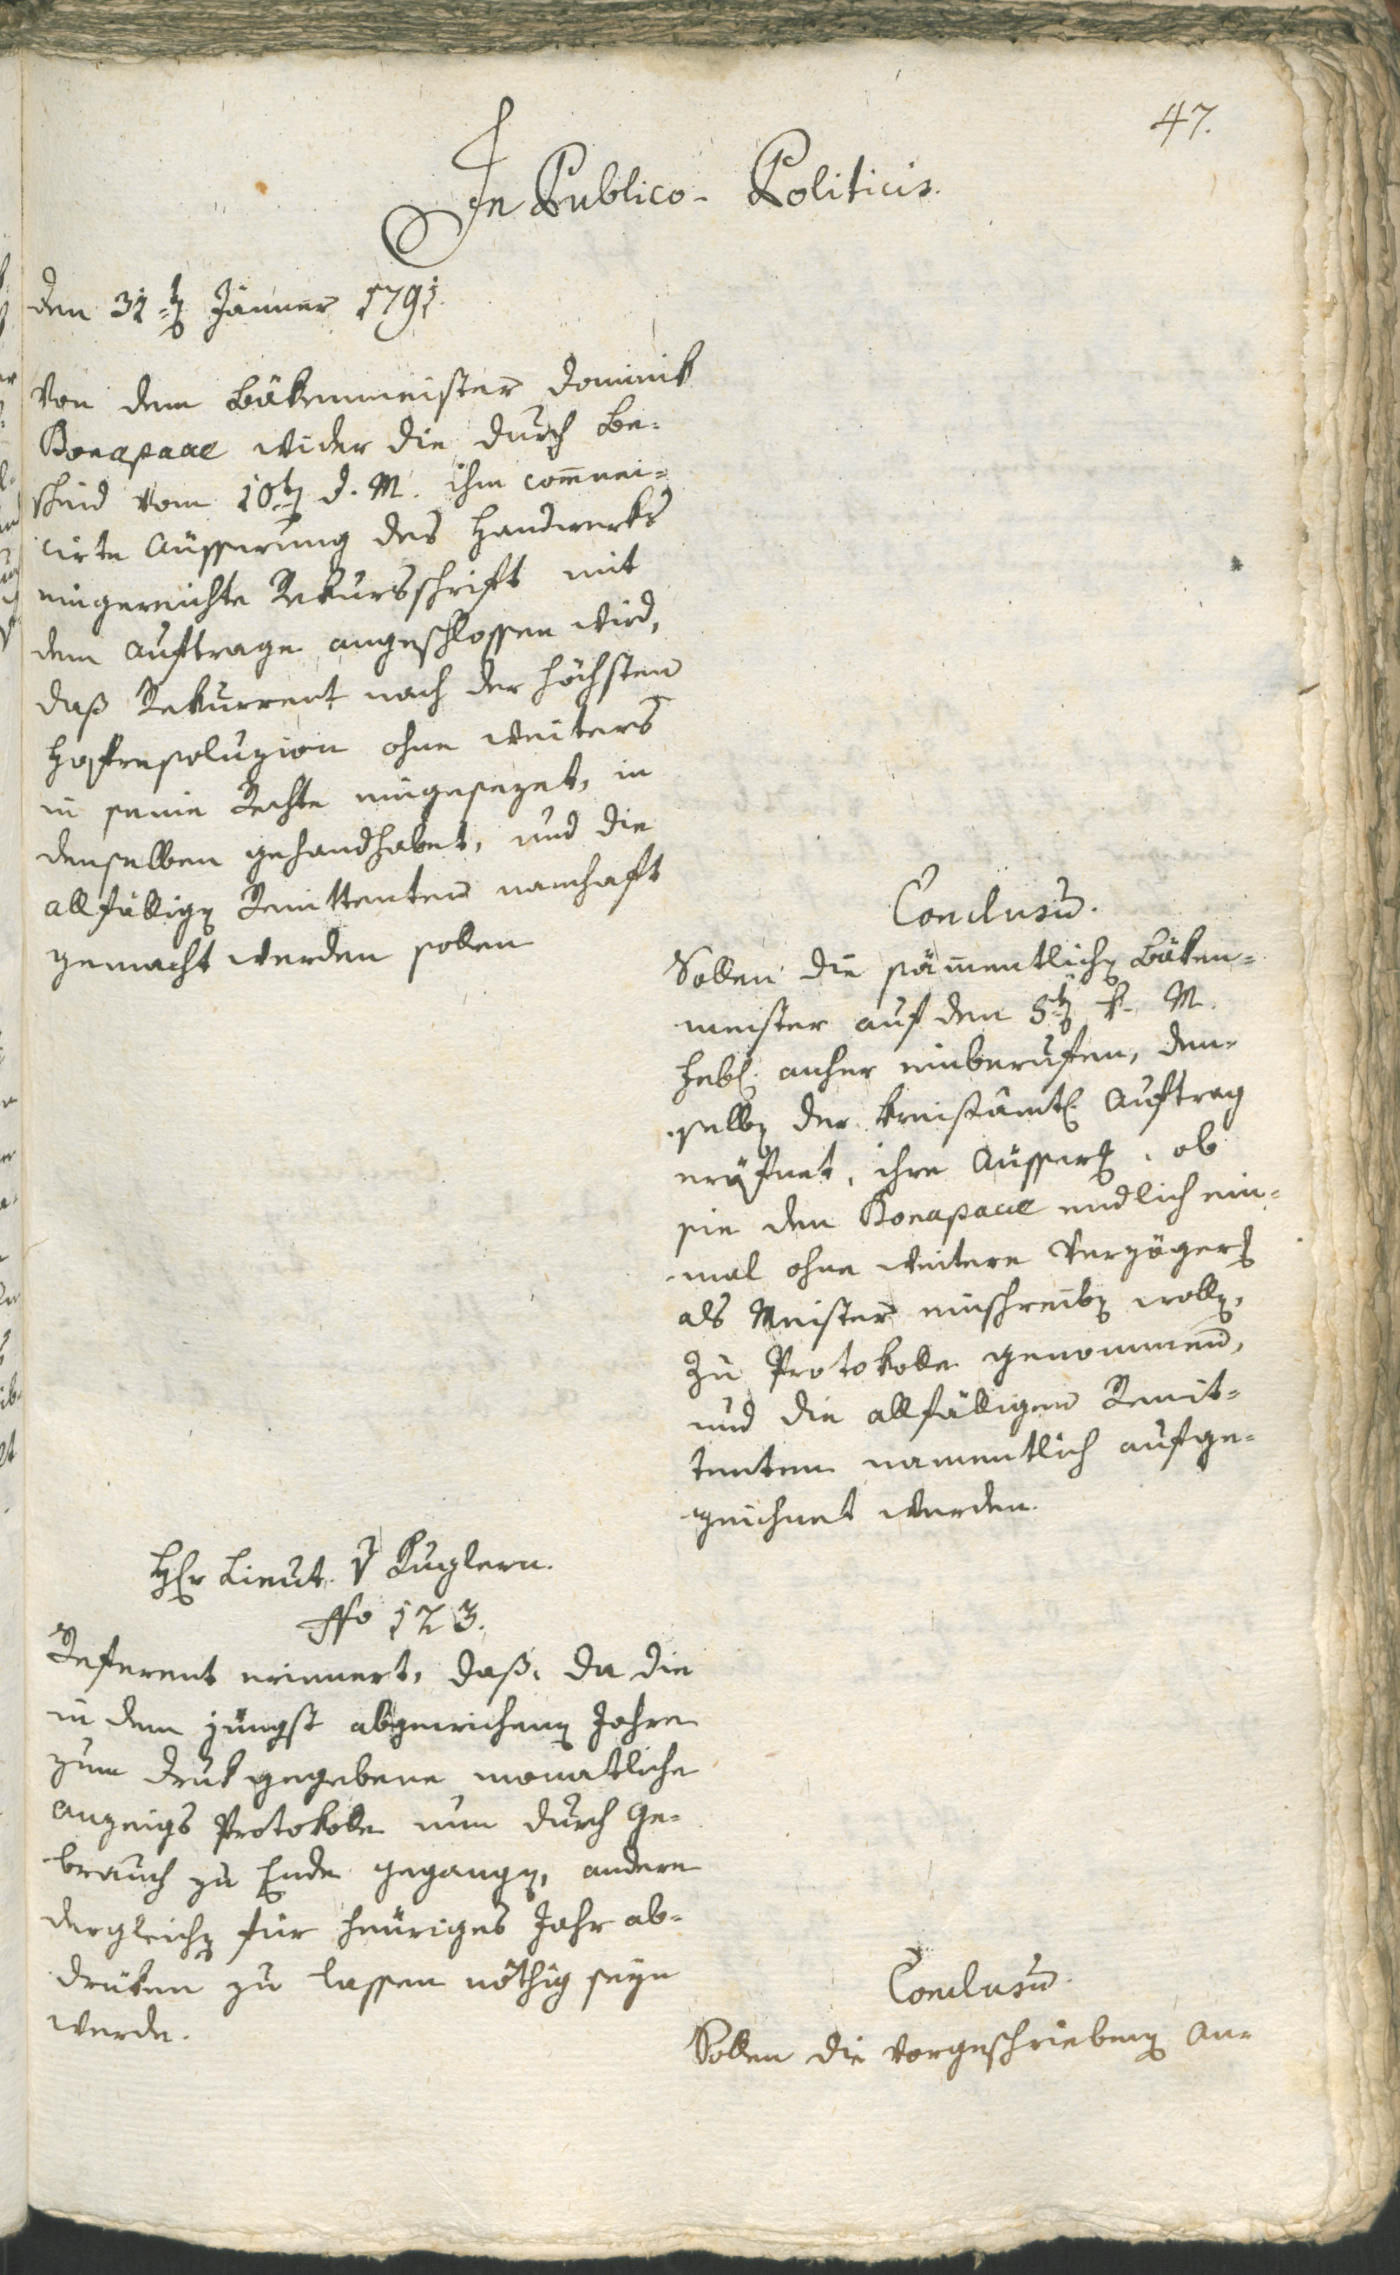 47.
In Publico-Politicis.
den 31ten Jänner 1791.
Von dem Bäkenmeister Dominik
Bonapace wider die durch Be-
scheid vom 10ten d. M. ihm com̅uni-
cirte Äusserung des Handwerks
eingereichte Rekursschrift mit
dem Auftrage angeschlossen wird,
daß Rekurrent nach der höchsten
Hofresoluzion ohne weiters
in seine Rechte eingesezet, in
denselben gehandhabet, und die
allfällign Renittenten namhaft
gemacht werden sollen
Conclusu̅.
Sollen die säm̅entlichn Bäken-
meister auf den 5tn k. M.
Febr. anher einberufen, den-
selbn der kreisämtl. Auftrag
eröfnet, ihre Äusserg, ob
sie den Bonapace endlich ein-
mal ohne weitere Verzögerg
als Meister einschreibn wolln,
zu Protokolle genommen,
und die allfälligen Renit-
tenten namentlich aufge-
zeichnet werden.
Hr Lieut. v Kuglern.
Nro 123.
Referent erinnert, daß, da die
in dem jüngst abgewichenn Jahre
zum Druk gegebene monatliche
Anzeigs Protokolle nun durch Ge-
brauch zu Ende gegangn, andere
dergleichn für heüriges Jahr ab-
drüken zu lassen nöthig seyn
werde.
Conclusu̅.
Sollen die vorgeschriebenn An-